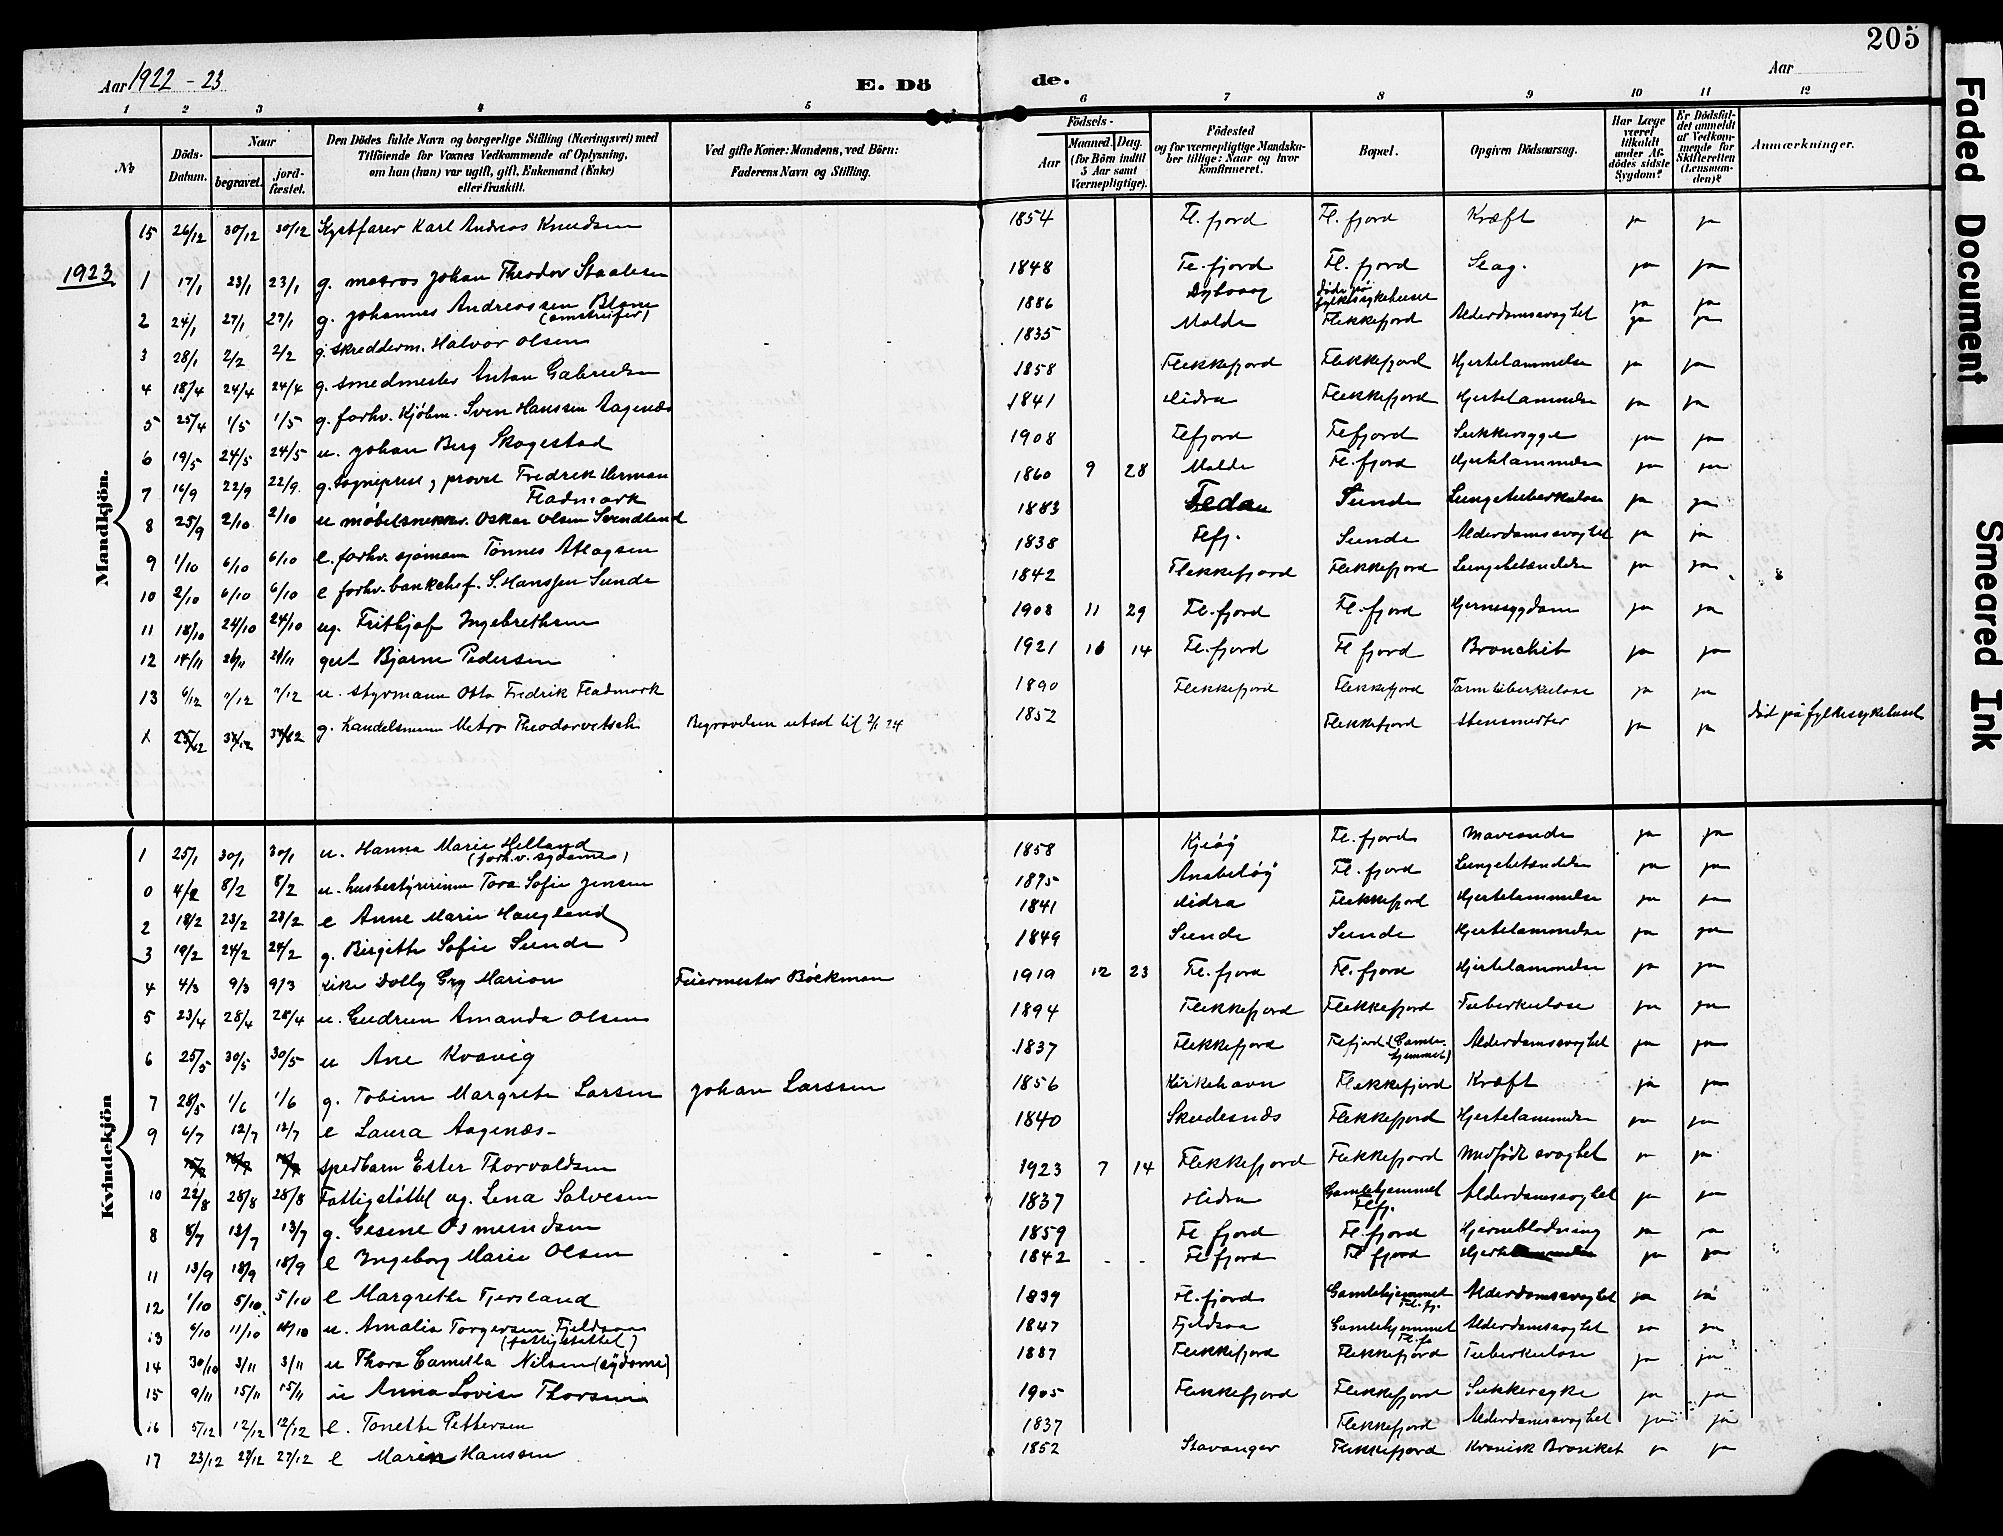 205
Aar 1922 - 23
E. Dö
de.
Aar
1 2 3 4 5 6 7 8 9 10 11 12
No
Döds-Datum.
Naar
begravet.
jordfæstet.
Den Dödes fulde Navn og borgerlige Stilling (Næringsvei) med
Tilföiende for Voxnes Vedkommende af Oplysning,
om hun (han) var ugift, gift, Enkemand (Enke)
eller fraskilt.
Ved gifte Koner: Mandens, ved Börn:
Faderens Navn og Stilling.
Födsels-
Aar
Maaned. Dag.
(for Börn indtil
5 Aar samt
Værnepligtige).
Födested
og for værnepligtige Mandska-
ber tillige: Naar og hvor
konfirmeret.
Bopæl.
Opgiven Dödsaarsag.
Har Læge
været
tilkaldt
under Af-
dödes sidste
Sygdom?
Er Dödsfal-
det anmeldt
af Vedkom-
mende for
Skifteretten
(Lensman-
den)?
Anmærkninger.
Mandkjön.
15 26/12 30/12 30/12 Kystfarer Karl Andreas Knudsen 1854 Fl. fjord Fl. fjord Kræft ja ja
1923
1 17/1 23/1 23/1 g. matros Johan Theodor Staalesen 1848 Fl. fjord Fl. fjord Slag. ja ja
2 24/1 27/1 27/1 g. Johannes Andreassen 1886 døde på fylkessykehuset ja ja
3 28/1 2/2 2/2 g. skredderm. Halvor Olsen 1835 Molde Flekkefjord Alderdomssvaghet ja ja
4 18/4 24/4 24/4 g. smedmester Anton Gabrielsen 1858 Flekkefjord Flekkefjord Hjertelammelse ja ja
5 25/4 1/5 1/5 g. forhv. Kjøbm. Sven Hanssen Aagenæs 1841 Hidra Flekkefjord Hjertelammelse ja ja
6 19/5 24/5 24/5 u. Johan Berg Skogestad 1908 Flfjord Flfjord Sukkersyge ja ja
7 16/9 22/9 22/9 g. Sogneprest, prost Fredrik Herman
Fladmark 1860 9 28 Molde Fl. fjord Hjertelammelse ja ja
8 25/9 2/10 2/10 u møbelsnekker. Oskar Olsen Svendland 1883 Feda Sunde Lungetuberkulose ja ja
9 1/10 6/10 6/10 e. forhv. sjømann Tønnes Atlagsen 1838 Flefj. Sunde Alderdomssvaghet ja ja
10 2/10 6/10 6/10 e forhv. bankchef. S. Hanssen Sunde 1842 Flekkefjord Flekkefjord Lungebetændelse ja ja
11 18/10 24/10 24/10 ug. Frithjof Ingebrethsen 1908 11 29 Fl. fjord Fl. fjord Hjernesygdom ja ja
12 14/11 21/11 21/11 gut Bjarne Pedersen 1921 10 14 Fl. fjord Fl fjord Bronchit ja ja
13 6/12 7/12 7/12 u. styrmann Otto Fredrik Fladmark 1890 Flekkefjord Flekkefjord Tarmtuberkulose ja ja
g. handelsmann Metro Theodorvitsch Begravelsen utsat til 2/1 24 1852 Flekkefjord ja ja død på fylkessykehuset
Kvindekjön
1 25/1 30/1 30/1 u. Hanna Marie Helland
(forhv. sydame) 1858 Kjeøy Fl. fjord Maveonde ja ja
0 4/2 8/2 8/2 u. husbestyrerinne Tora Sofie Jensen 1895 Anabeløy Fl. fjord Lungebetændelse ja ja
2 18/2 23/2 23/2 e Anne Marie Haugland 1841 Hidra Flekkefjord Hjertelammelse ja ja
3 19/2 24/2 24/2 g. Birgitte Sofie Sunde 1849 Sunde Sunde Hjertelammelse ja ja
4 4/3 9/3 9/3 pike Dolly Gry Marion Feiermester Bøckman 1919 12 23 Fl. fjord Fl. fjord Hjertelammelse ja ja
5 23/4 28/4 28/4 u. Gudrun Amanda Olsen 1894 Flekkefjord Flekkefjord Tuberkulose ja ja
6 25/5 30/5 30/5 u Ane Kvavig 1837 Flekkefjord Flfjord (Gamle-
hjemmet) Alderdomssvaghet ja ja
7 28/5 1/6 1/6 g. Tobine Margrete Larsen Johan Larssen 1856 Kirkehavn Flekkefjord Kræft ja ja
9 6/7 12/7 12/7 e Laura Aagenæs- 1840 Skudesnæs Flekkefjord Hjertelammelse ja ja
spedbarn Ester Thorvaldsen 1923 7 14 Flekkefjord Flekkefjord Medfødt svaghet ja ja
10 22/8 28/8 28/8 Fattigstøttet ug. Lena Salvesen 1837 Hidra Gamlehjemmet
Flfj. Alderdomssvaghet ja ja
8 8/7 13/7 13/7 g. Gesine Osmundsen 1859 Fl fjord Fl. fjord Hjerneblødning ja ja
11 13/9 18/9 18/9 e Ingeborg Marie Olsen 1842 Fl fjord Fl fjord Hjertelammelse ja ja
12 1/10 5/10 5/10 e Margrethe Tjersland 1839 Fl. fjord Gamlehjemmet
Fl. fj. Alderdomssvaghet ja ja
13 6/10 11/10 11/10 u. Amalie Torgersen Fjeldsaa
(fattigstøttet) 1847 Fjeldsaa Gamlehjemmet
Fl. fj Alderdomssvaghet ja ja
14 30/10 3/11 3/11 u Thora Camilla Nilsen (sydame) 1887 Flekkefjord Flekkefjord Tuberkulose ja ja
15 9/11 15/11 15/11 u Anna Lovise Thorsen 1905 Flekkefjord Flekkefjord Sukkersyke ja ja
16 5/12 12/12 12/12 e. Tonette Pettersen 1837 Flekkefjord Alderdomssvaghet ja ja
17 23/12 27/12 27/12 e Marie Hanssen 1852 Stavanger Flekkefjord Kronisk Bronkit ja ja
Faded Document
Smeared Ink